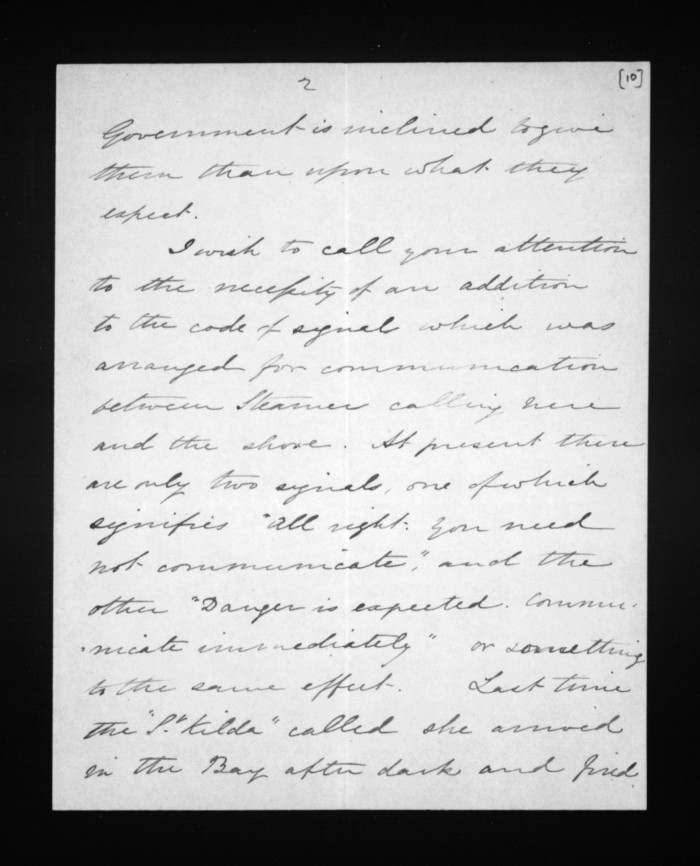 2
[10]
Government is inclined to give
them than upon what they
expect.
I wish to call your attention
to the necessity of an addition
to the code of signal which was
arranged for communication
between Steamer calling here
and the shore. At present there
are only two signals, one of which
signifies "all right. You need
not communicate", and the
other "Danger is expected. Commu-
-nicate immediately" or something
to the same effect. Last time
the "St. Kilda" called she arrived
in the Bay after dark and fired